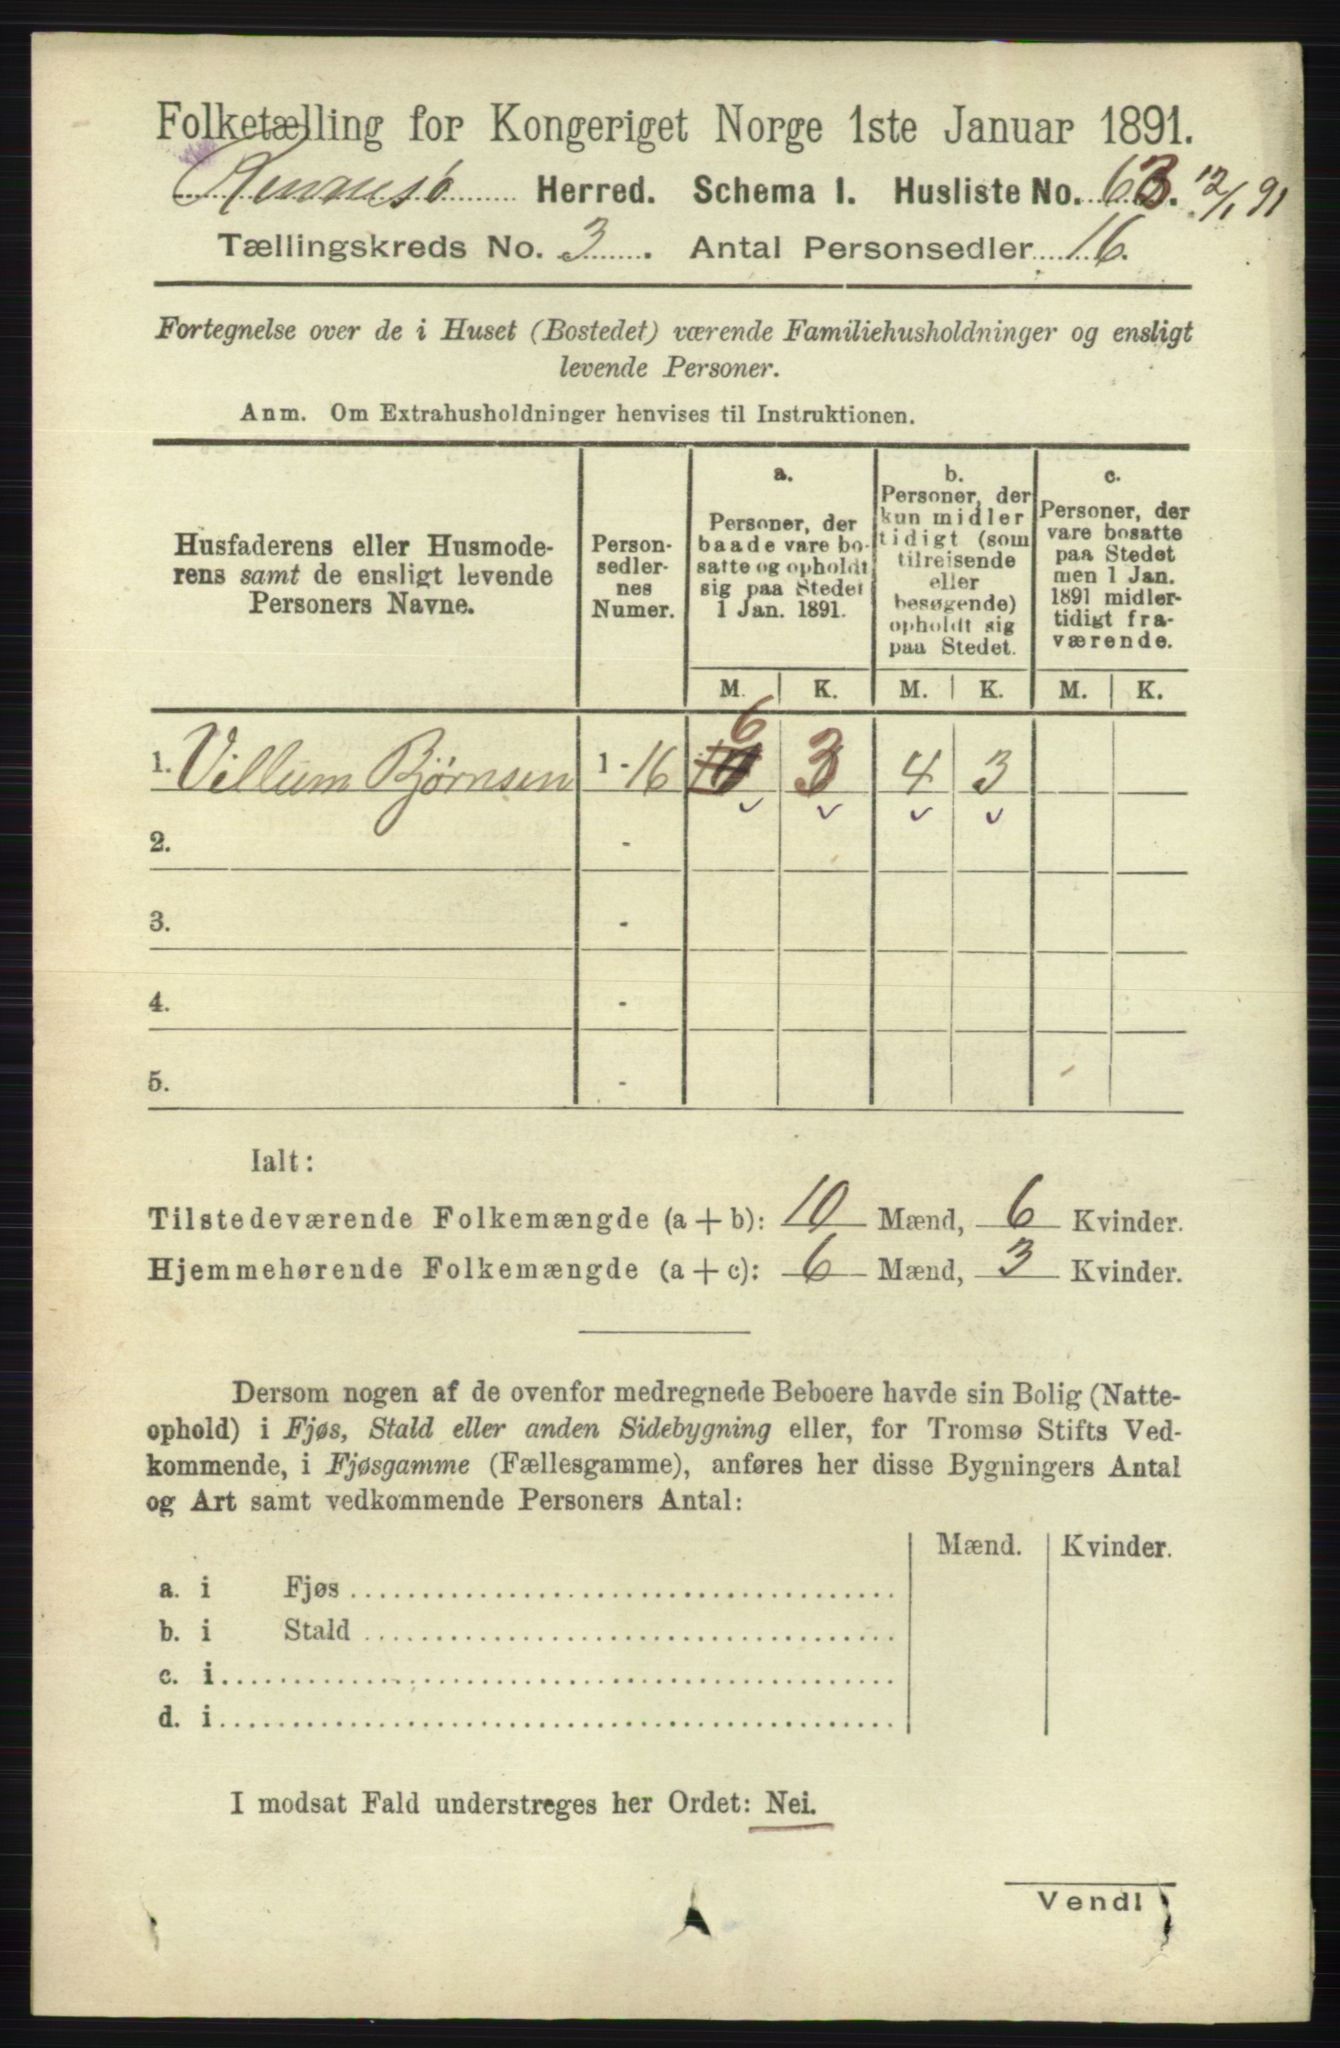 Folketælling for Kongeriget Norge 1ste Januar 1891.
Herred. Schema I. Husliste No. 63. 12/1 91
Tællingskreds No. 3. Antal Personsedler 16.
Fortegnelse over de i Huset (Bostedet) værende Familiehusholdninger og ensligt
levende Personer.
Anm. Om Extrahusholdninger henvises til Instruktionen.
Husfaderens eller Husmode-
rens samt de ensligt levende
Personers Navne.
Person-
sedler-
nes
Numer.
a.
Personer, der
baade vare bo-
satte og opholdt
sig paa Stedet
1 Jan. 1891.
b.
Personer, der
kun midler
tidigt (som
tilreisende
eller
besøgende)
opholdt sig
paa Stedet.
c.
Personer, der
vare bosatte
paa Stedet
men 1 Jan.
1891 midler-
tidigt fra-
værende.
M. K. M. K. M. K.
1. Villum Bjørnsen 1 - 16 6 3 4 3
2. -
3. -
4. -
5. -
Ialt:
Tilstedeværende Folkemængde (a + b): 10 Mænd, 6 Kvinder.
Hjemmehørende Folkemængde (a + c): 6 Mænd, 3 Kvinder.
Dersom nogen af de ovenfor medregnede Beboere havde sin Bolig (Natte-
ophold) i Fjøs, Stald eller anden Sidebygning eller, for Tromsø Stifts Ved-
kommende, i Fjøsgamme (Fællesgamme), anføres her disse Bygningers Antal
og Art samt vedkommende Personers Antal:
Mænd. Kvinder.
a. i Fjøs
b. i Stald
c. i
d. i
I modsat Fald understreges her Ordet: Nei.
Vend!